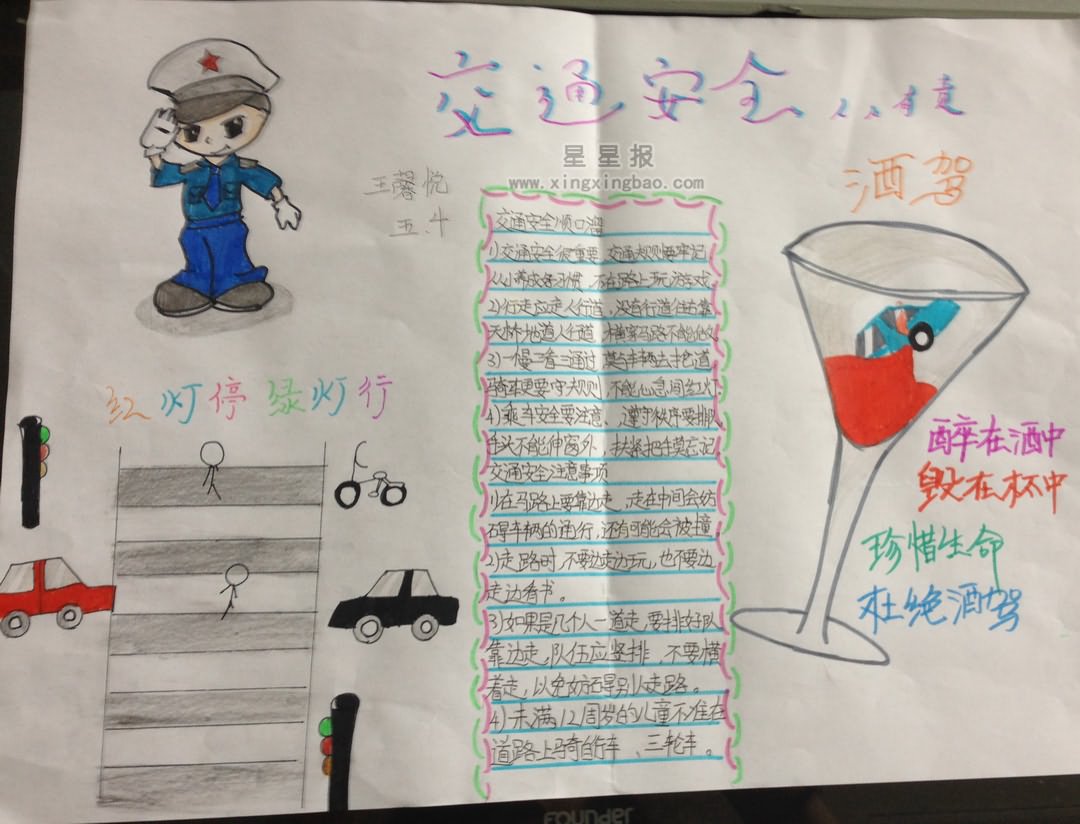 交通安全人人有责
星星报
www.xingxingbao.com
王馨悦
五.十
酒驾
交通安全顺口溜
1)交通安全很重要,交通规则要牢记
从小养成好习惯,不在路上玩游戏。
2)行走应走人行道,没有行道往右靠
天桥地道人行道,横穿马路不能做。
3)一慢二看三通过,莫与车辆去抢道
骑车更要守规则,不能心急闯红灯
4)乘车安全要注意,遵守秩序要排队
手头不能伸窗外,扶紧把手莫忘记。
交通安全注意事项
1)在马路上要靠边走,走在中间会妨
碍车辆的通行,还有可能会被撞。
2)走路时,不要边走边玩,也不要边
走边看书。
3)如果是几个人一道走,要排好队
靠边走,队伍应竖排,不要横
着走,以免妨碍别人走路。
4)未满12周岁的儿童不准在
道路上骑自行车、三轮车。
红灯停绿灯行
醉在酒中
毁在杯中
珍惜生命
杜绝酒驾
FOUNDER